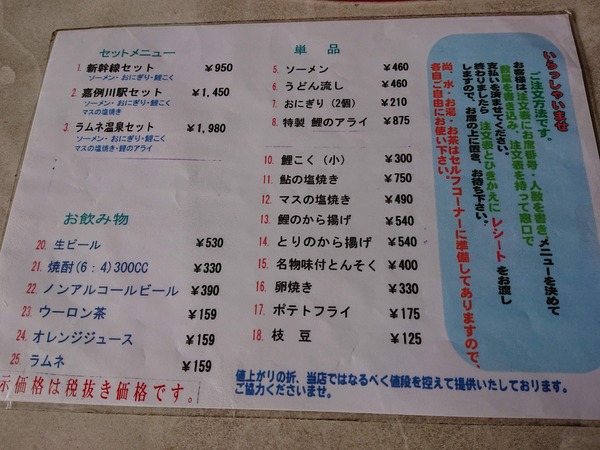 セットメニュー
1. 新幹線セット ￥950
ソーメン・おにぎり・鯉こく
2. 嘉例川駅セット ￥1,450
ソーメン・おにぎり・鯉こく
マスの塩焼き
3. ラムネ温泉セット ￥1,980
ソーメン・おにぎり・鯉こく
マスの塩焼き・鯉のアライ
お飲み物
20. 生ビール ￥530
21. 焼酎(6：4)300CC ￥330
22. ノンアルコールビール ￥390
23. ウーロン茶 ￥159
24. オレンジジュース ￥159
25. ラムネ ￥159
示価格は税抜き価格です。
単品
5. ソーメン ￥460
6. うどん流し ￥460
7. おにぎり（2個） ￥210
8. 特製 鯉のアライ ￥875
10. 鯉こく（小） ￥300
11. 鮎の塩焼き ￥750
12. マスの塩焼き ￥490
13. 鯉のから揚げ ￥540
14. とりのから揚げ ￥540
15. 名物味付とんそく ￥400
16. 卵焼き ￥330
17. ポテトフライ ￥175
18. 枝豆 ￥125
値上がりの折、当店ではなるべく値段を控えて提供いたしております。
ご協力くださいませ。
いらっしゃいませ
ご注文方法です。
お客様は注文表にお席番号・人数を書き、メニューを決めて
数量を書き込み、注文表を持って窓口で
支払いを済ませてください。
終わりましたら 注文表とひきかえに レシート をお渡し
しますので、お席の上に置き、お待ち下さい。
尚、水・お湯・お茶はセルフコーナーに準備してありますので、
各自ご自由にお使い下さい。